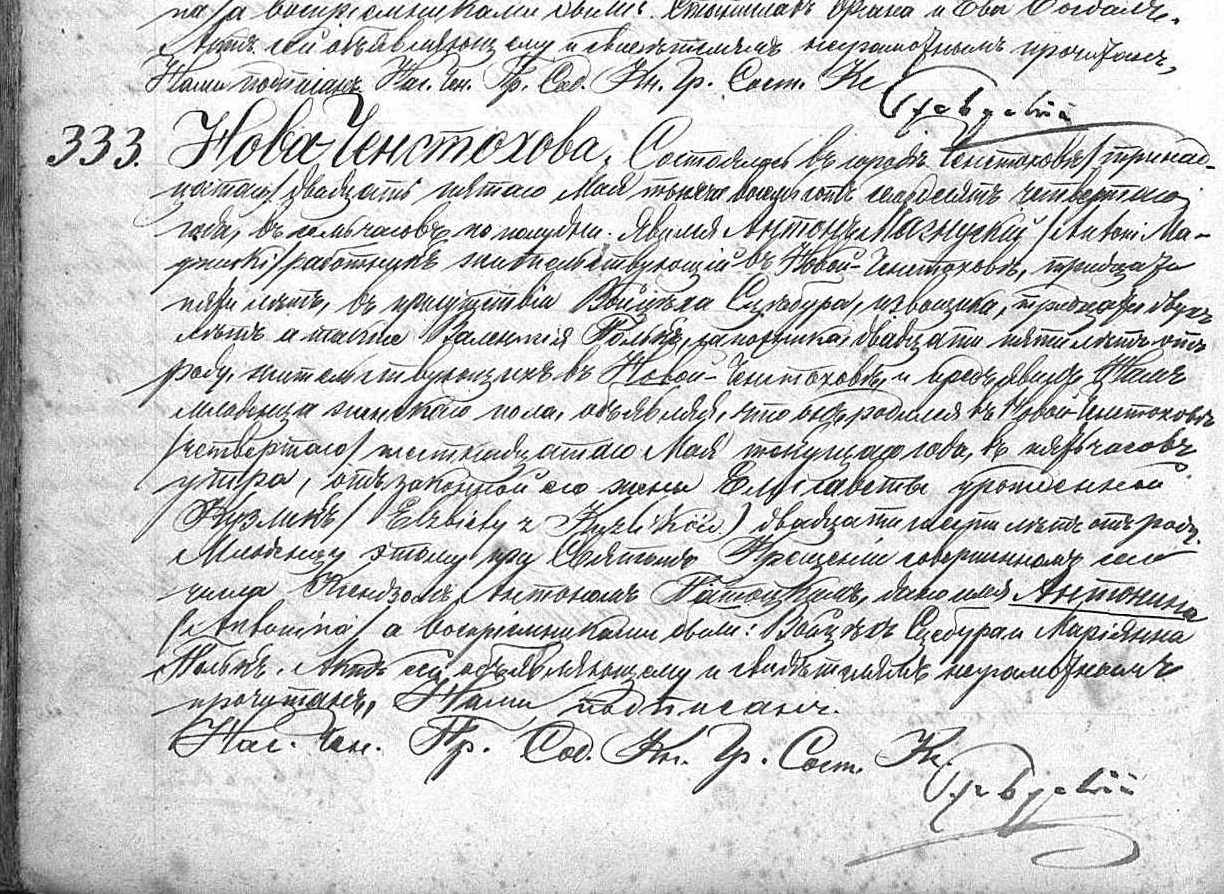 па/ а воспріемниками были: Станиславъ и Ева
Актъ сей объявляющему и свидѣтелямъ неграмотнымъ прочитанъ,
Нами подписанъ. Нас. Чен. Пр. Сод. Кн. Гр. Сост. Кс.
333. Нова Ченстохова. Состоялось въ городѣ Ченстоховѣ /тринад-
цатаго/ двадцать пятаго Мая тысяча восемьсотъ семдесятъ четвертаго
года, въ семь часовъ по полудни. Явился Антонъ /Antoni Ma-
/ работникъ жительствующій въ Новой-Ченстоховѣ, тридцати
пяти лѣтъ, въ присутствіи Войцѣха извощика, тридцати двухъ
лѣтъ а также Валентія сапожника, двадцати пяти лѣтъ отъ
роду, жительствующихъ въ Новой-Ченстоховѣ, и предъявилъ Намъ
младенца женскаго пола, объявляя, что онъ родился въ Новой Ченстоховѣ
/четвертаго/ шестнадцатаго Мая текущаго года, въ пять часовъ
утра, отъ законной его жены Елисаветы урожденной
/Elżbiety z / двадцати лѣтъ отъ роду.
Младенцу этому при Святомъ Крещеніи совершенномъ сего
числа Ксендзомъ Антономъ дано имя Антонина
/Antonina/ а воспріемниками были: Войцѣхъ и Маріянна
Актъ сей объявляющему и свидѣтелямъ неграмотнымъ
прочитанъ, Нами подписанъ.
Нас. Чен. Пр. Сод. Кн. Гр. Сост. Кс.